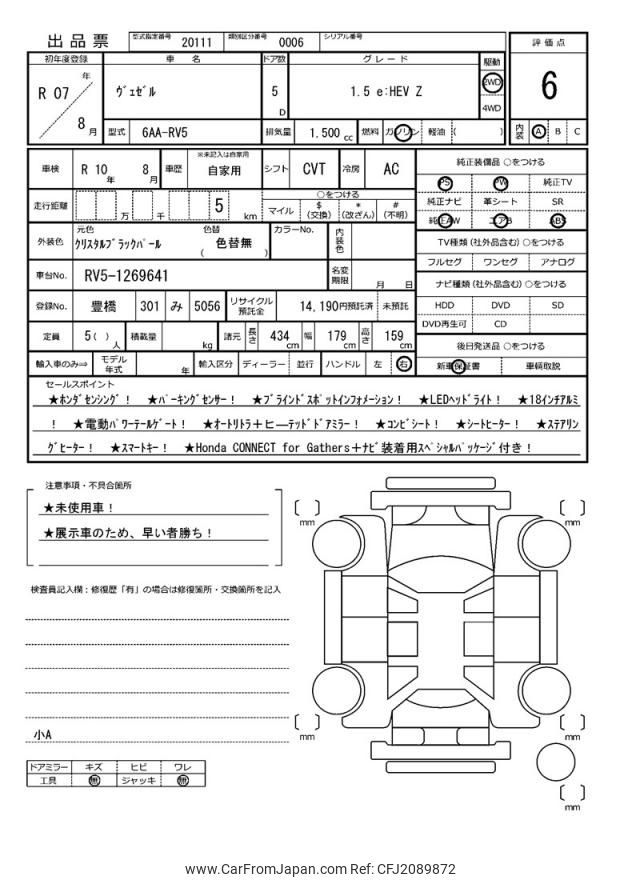 出品票 型式指定番号 20111 類別区分番号 0006 シリアル番号
評価点
初年度登録 車名 ドア数 グレード 駆動
R 07 年 8 月 ヴェゼル 5 D 1.5 e:HEV Z 2WD 4WD
6
型式 6AA-RV5 排気量 1.500 cc 燃料 ガソリン 軽油 ( )
内装 A B C
車検 R 10 年 8 月 車歴 ※未記入は自家用 自家用 シフト CVT 冷房 AC
純正装備品 ○をつける
PS PW 純正TV
純正ナビ 革シート SR
純正AW エアB ABS
走行距離 万 千 5 km
○をつける
マイル $ (交換) * (改ざん) # (不明)
外装色 元色 クリスタルブラックパール 色替 ( 色替無 ) カラーNo. 内装色
TV種類 (社外品含む) ○をつける
フルセグ ワンセグ アナログ
車台No. RV5-1269641 名変期限 月 日
ナビ種類 (社外品含む) ○をつける
HDD DVD SD
DVD再生可 CD
登録No. 豊橋 301 み 5056 リサイクル預託金 14,190円預託済 未預託
定員 5 ( ) 人 積載量 kg 諸元 長さ 434 cm 幅 179 cm 高さ 159 cm
後日発送品 ○をつける
新車保証書 車輌取説
輸入車のみ⇒ モデル年式 年 輸入区分 ディーラー 並行 ハンドル 左 右
セールスポイント
★ホンダセンシング! ★パーキングセンサー! ★ブラインドスポットインフォメーション! ★LEDヘッドライト! ★18インチアルミ
! ★電動パワーテールゲート! ★オートリトラ+ヒーテッドドアミラー! ★コンビシート! ★シートヒーター! ★ステアリン
グヒーター! ★スマートキー! ★Honda CONNECT for Gathers+ナビ装着用スペシャルパッケージ付き!
注意事項・不具合箇所
★未使用車!
★展示車のため、早い者勝ち!
検査員記入欄:修復歴「有」の場合は修復箇所・交換箇所を記入
小A
[ ] mm
[ ] mm
[ ] mm
[ ] mm
[ ] mm
ドアミラー キズ ヒビ ワレ
工具 無 ジャッキ 無
www.CarFromJapan.com Ref: CFJ2089872